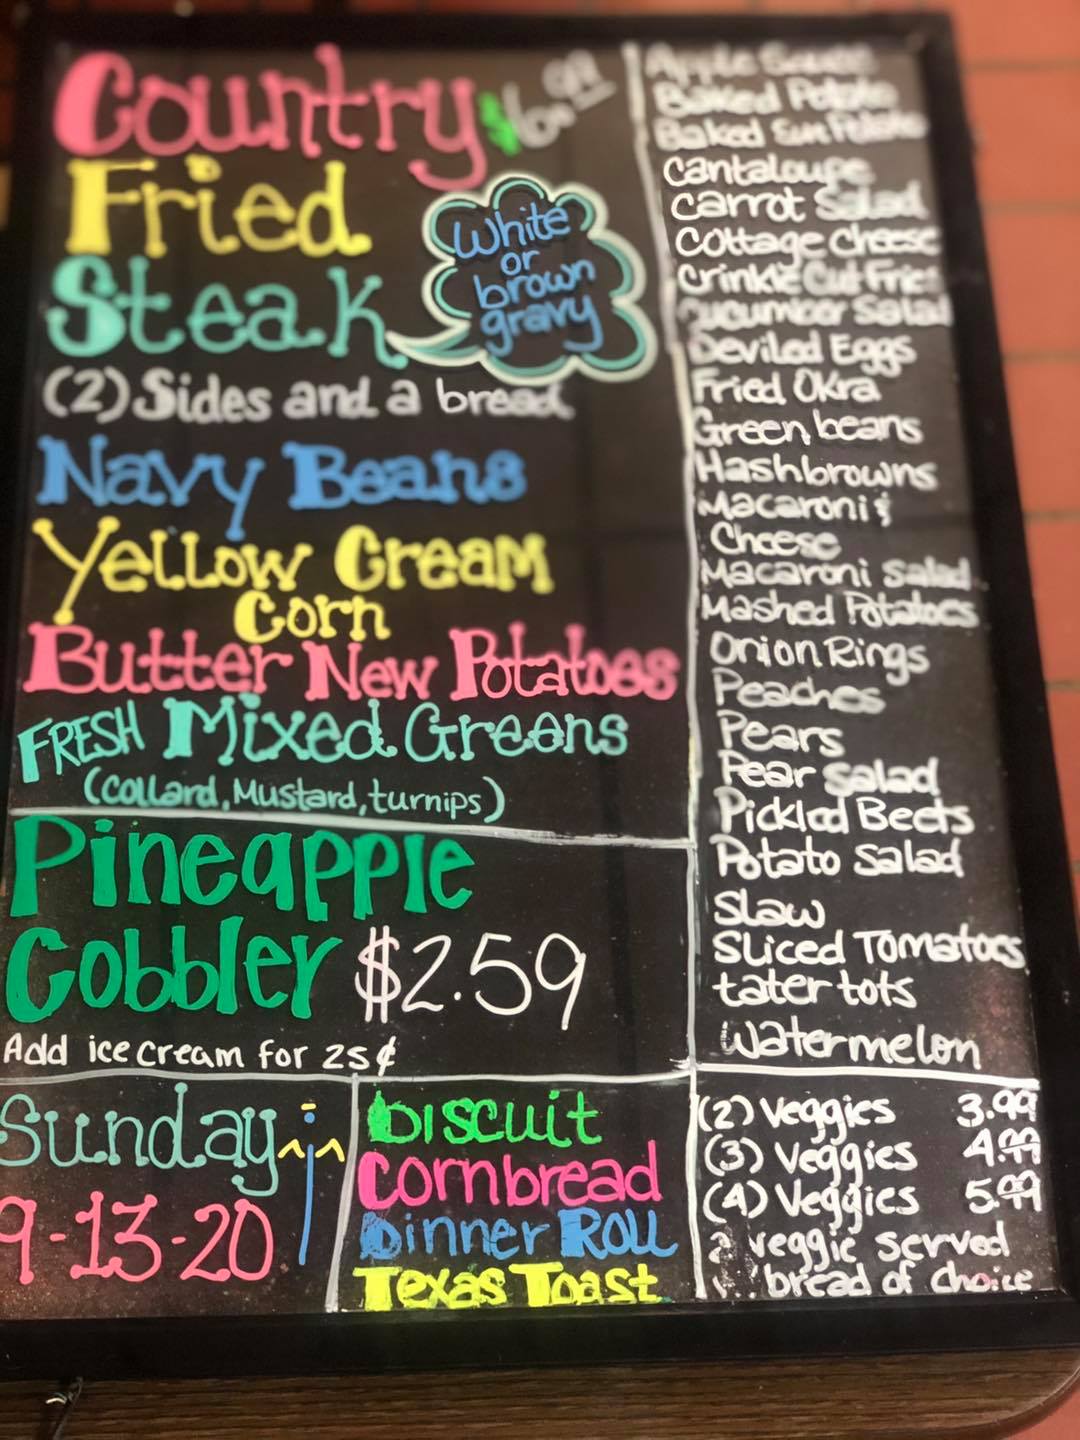 Country $6.99
Fried
Steak
White
or
brown
gravy
(2) Sides and a bread
Navy Beans
Yellow Cream
Corn
Butter New Potatoes
FRESH Mixed Greens
(Collard, Mustard, turnips)
Pineapple
Cobbler $2.59
Add ice cream for 25¢
Sunday
9-13-20
Biscuit
Cornbread
Dinner Roll
Texas Toast
Apple Sauce
Baked Potato
Baked
Cantaloupe
Carrot Salad
Cottage Cheese
Crinkle Cut Fries
Cucumber Salad
Deviled Eggs
Fried Okra
Green beans
Hashbrowns
Macaroni &
Cheese
Macaroni Salad
Mashed Potatoes
Onion Rings
Peaches
Pears
Pear Salad
Pickled Beets
Potato Salad
Slaw
Sliced Tomatoes
tater tots
Watermelon
(2) Veggies 3.99
(3) Veggies 4.99
(4) Veggies 5.99
veggie served
bread of choice